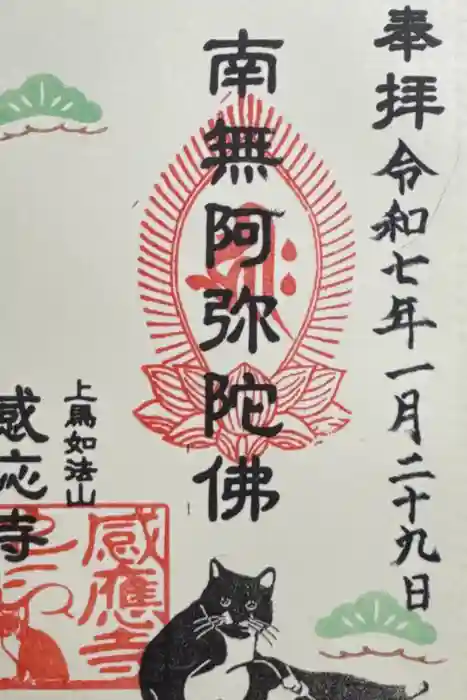 奉拝 令和七年一月二十九日
南無阿弥陀佛
上馬如法山
感応寺
感應寺